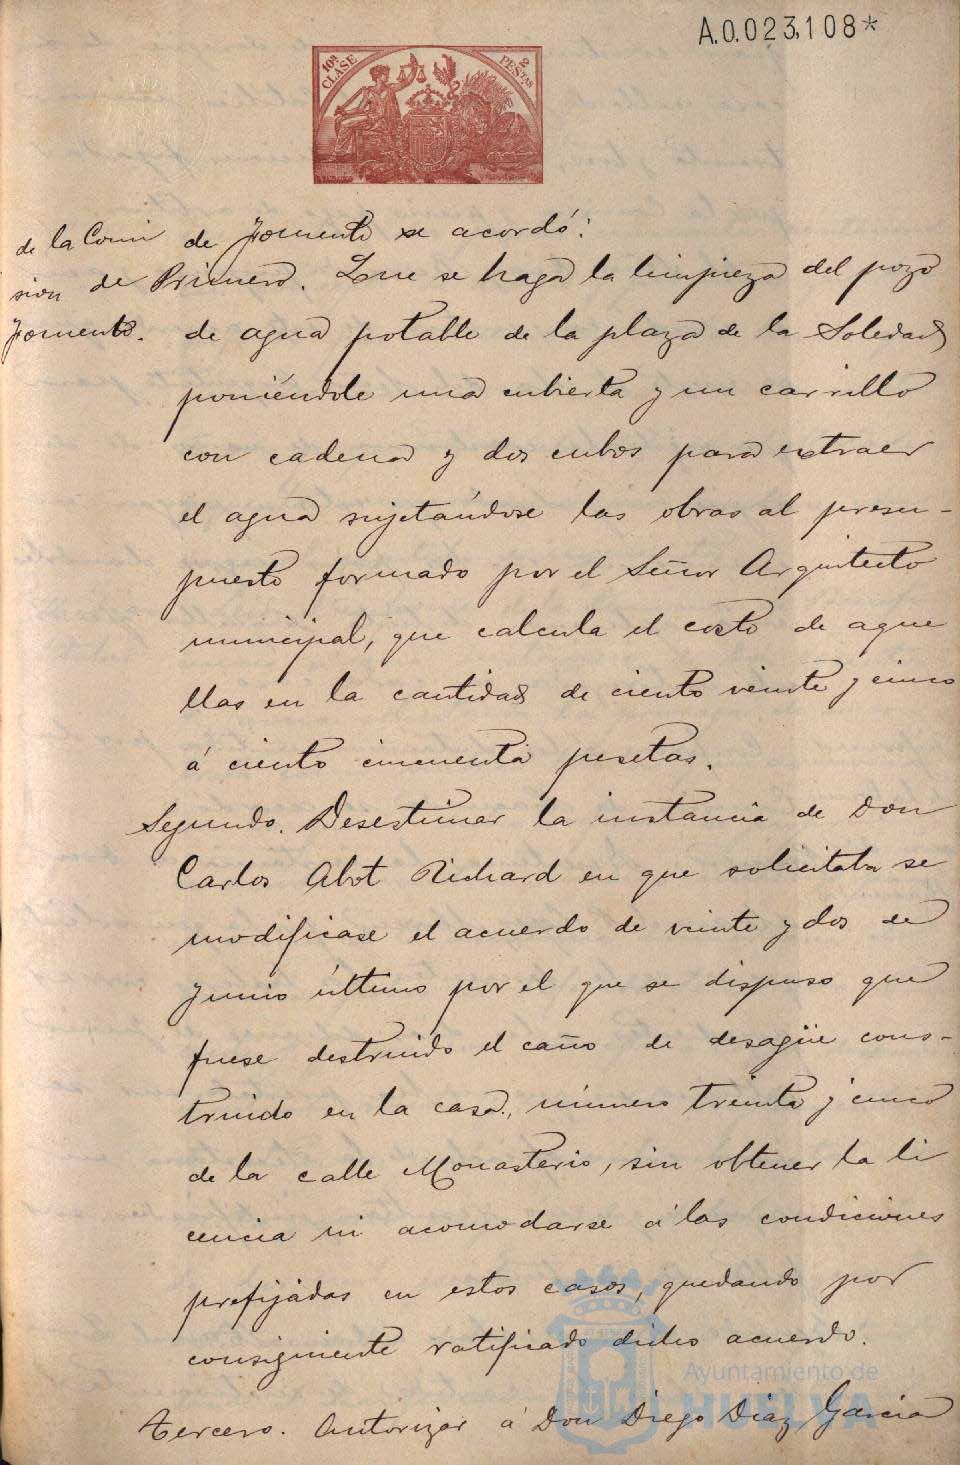 A.0.023,108*
10ª CLASE
2 PESETAS
de la Comi
sion de
Fomento.
de Fomento se acordó:
Primero. Que se haga la limpieza del pozo
de agua potable de la plaza de la Soledad
poniéndole una cubierta y un carrillo
con cadena y dos cubos para extraer
el agua sujetándose las obras al presu-
puesto formado por el Señor Arquitecto
municipal, que calcula el costo de aque
llas en la cantidad de ciento veinte y cinco
á ciento cincuenta pesetas.
Segundo. Desestimar la instancia de Don
Carlos Abot Richard en que solicitaba se
modificase el acuerdo de veinte y dos de
Junio último por el que se dispuso que
fuese destruido el caño de desagüe cons-
truido en la casa, número treinta y cinco
de la calle Monasterio, sin obtener la li
cencia ni acomodarse á las condiciones
prefijadas en estos casos, quedando por
consiguiente ratificado dicho acuerdo.
Tercero. Autorizar á Don Diego Diaz Garcia
Ayuntamiento de
HUELVA